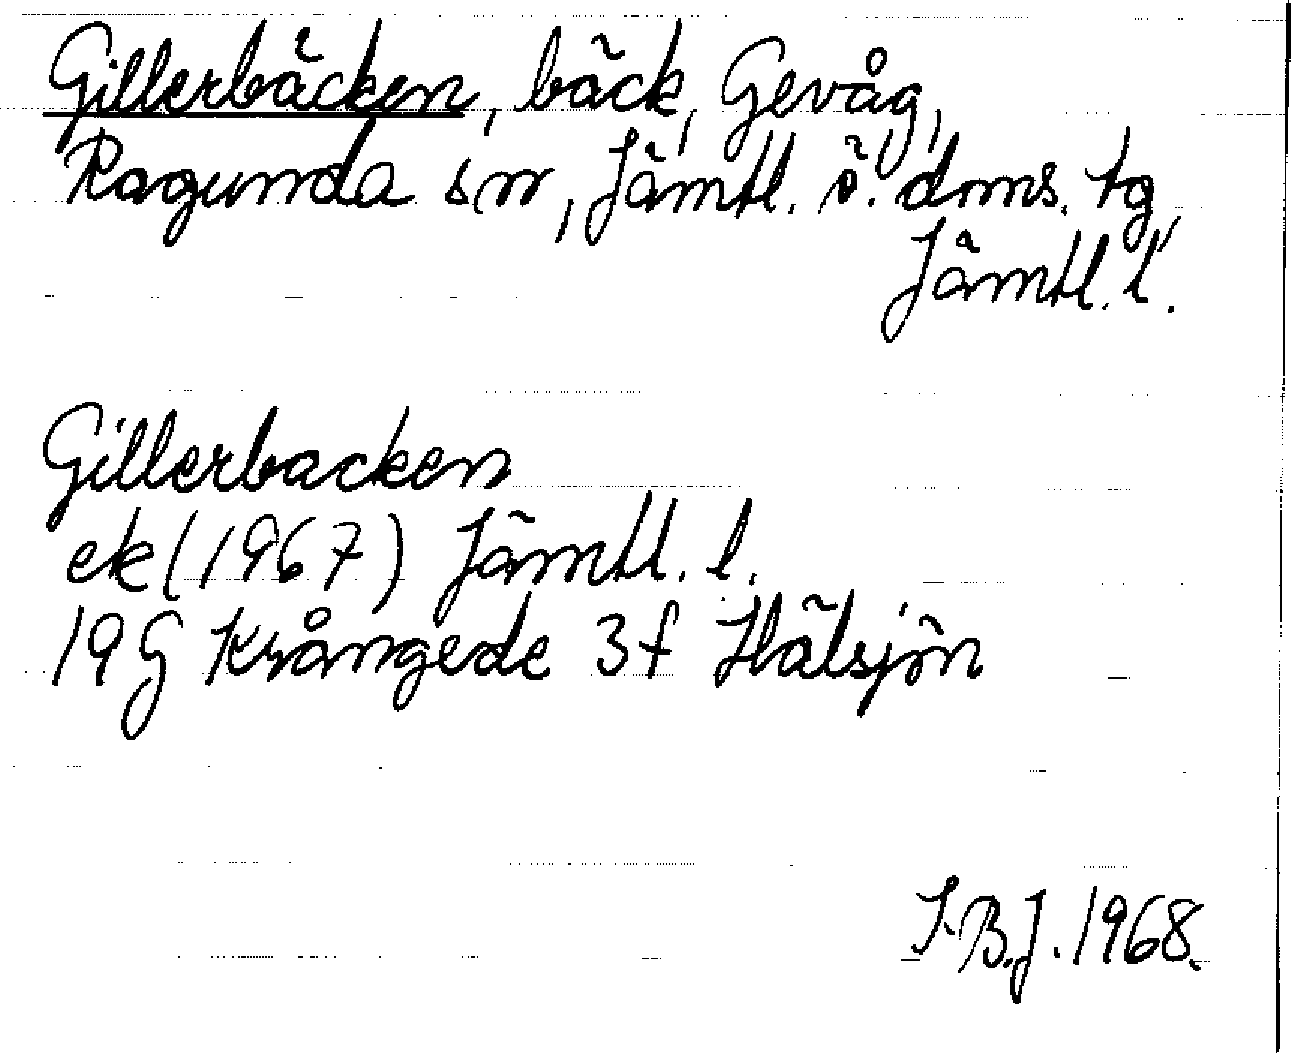 Gillerbäcken, bäck, Gevåg,
Ragunda sn, Jämtl. ö. doms. tg,
Jämtl. l.
Gillerbacken
ek (1967) Jämtl. l.
19 G Krångede 3 f Hälsjön
I.B.J. 1968.